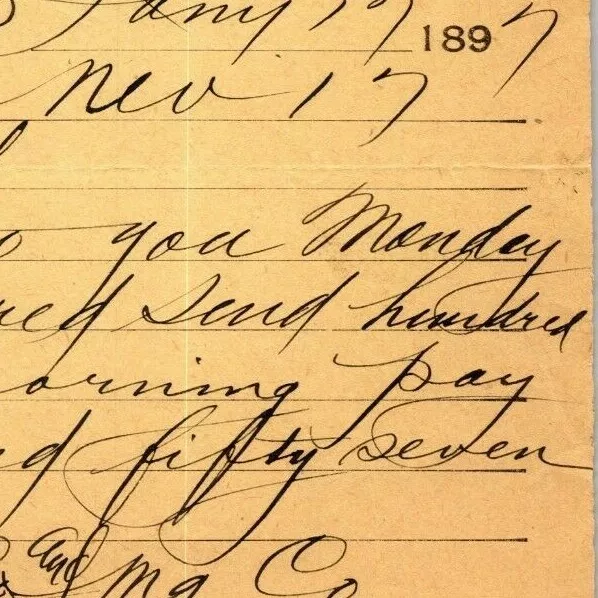 Jany 17 1897
Nev 17
you Monday
red send hundred
orning pay
d fifty seven
and Mg Co